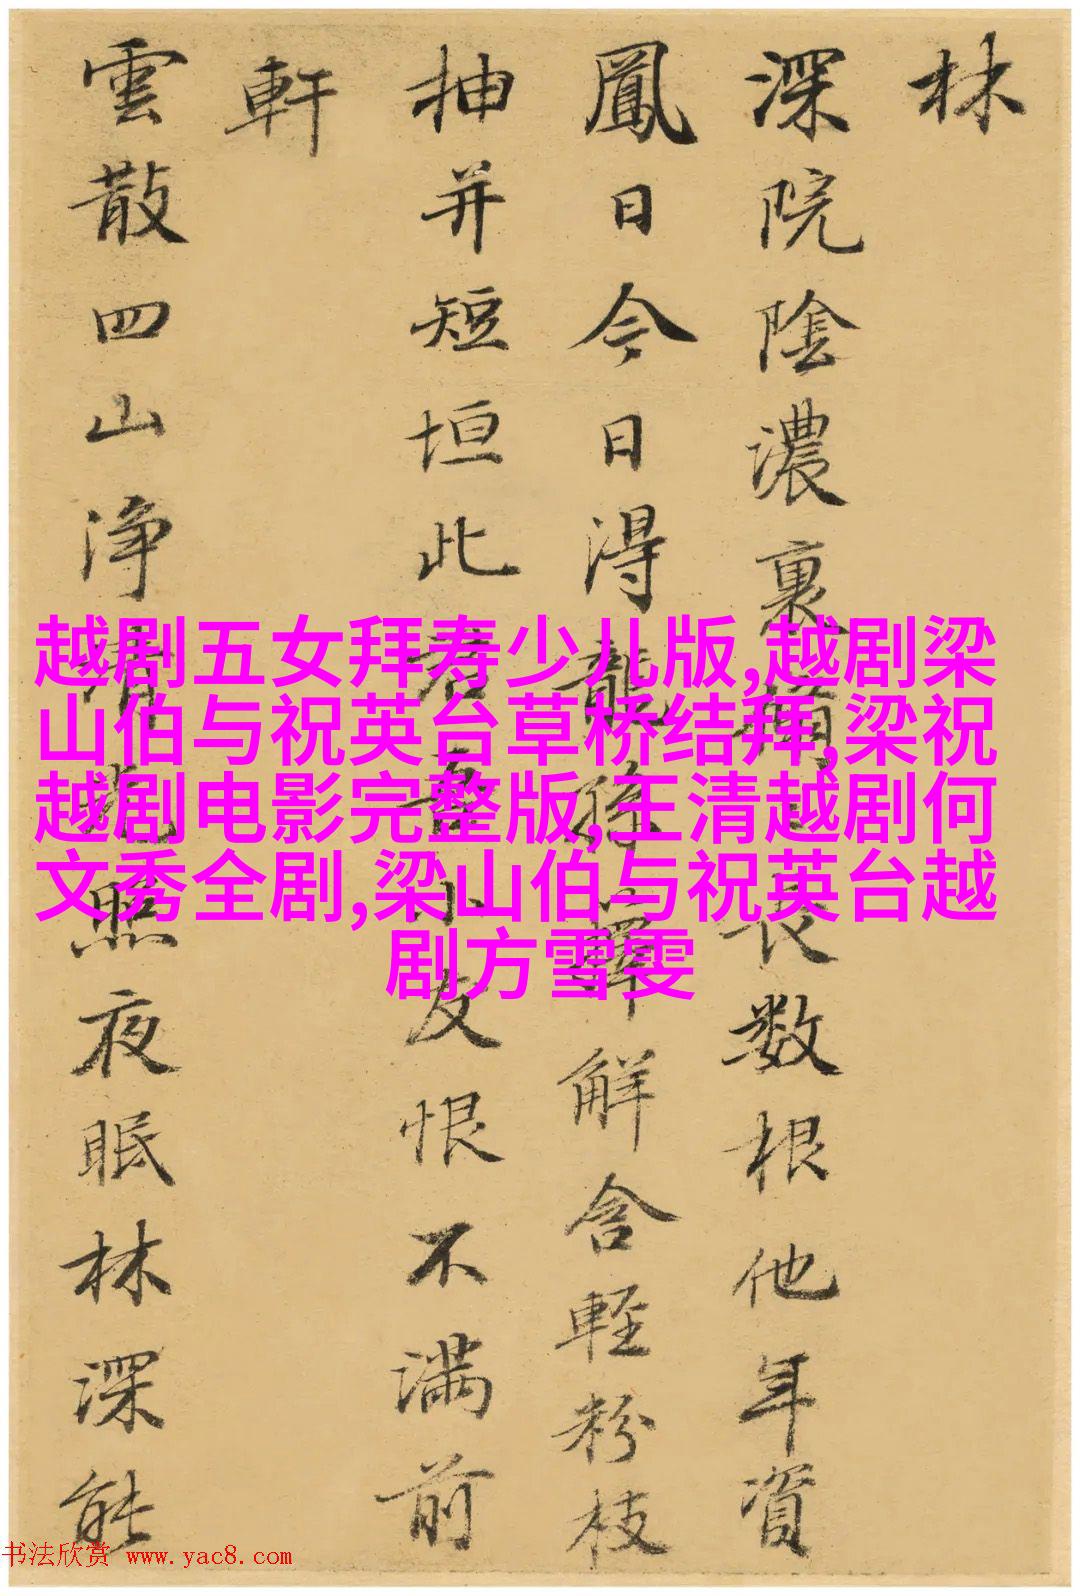 林
深院陰濃裏長数根他年資
鳳日今日得龍孫籜解含輕粉枝
抽并短垣此君吾小友恨不滿前
軒
雲散四山净清光照夜眠林深能
越剧五女拜寿少儿版,越剧梁
山伯与祝英台草桥结拜,梁祝
越剧电影完整版,王清越剧何
文秀全剧,梁山伯与祝英台越
剧方雪雯
书法欣赏 www.yac8.com